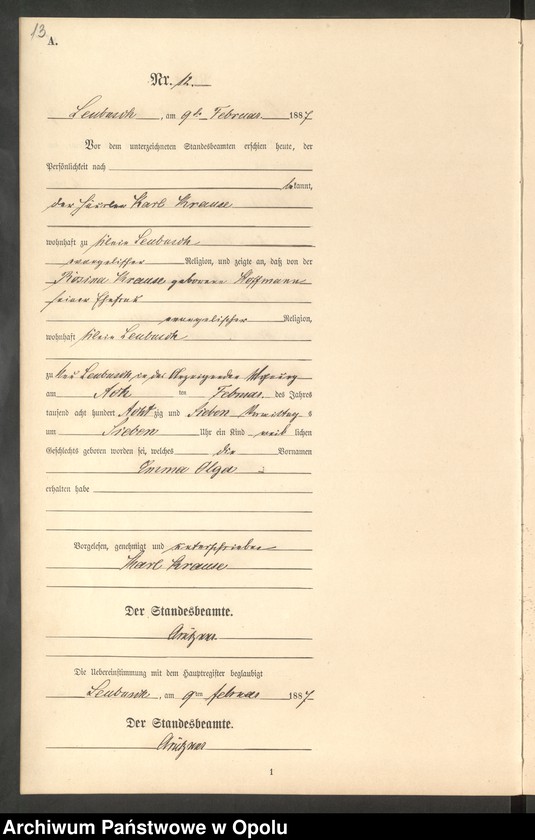 13
A.
Nr. 12.
Leubusch, am 9t Februar 1887
Vor dem unterzeichneten Standesbeamten erschien heute, der
Persönlichkeit nach
bekannt,
der Häusler Karl Krause
wohnhaft zu Klein Leubusch
evangelischer Religion, und zeigte an, daß von der
Rosina Krause geborene Hoffmann
seiner Ehefrau
evangelischer Religion,
wohnhaft Klein Leubusch
zu Klei Leubusch in des Anzeigenden Wohnung
am Acht ten Februar des Jahres
tausend acht hundert Achtzig und Sieben Vormittags
um Sieben Uhr ein Kind weiblichen
Geschlechts geboren worden sei, welches die Vornamen
Emma Olga
erhalten habe
Vorgelesen, genehmigt und unterschrieben
Karl Krause
Der Standesbeamte.
Die Uebereinstimmung mit dem Hauptregister beglaubigt
Leubusch, am 9ten Februar 1887
Der Standesbeamte.
1
Archiwum Państwowe w Opolu